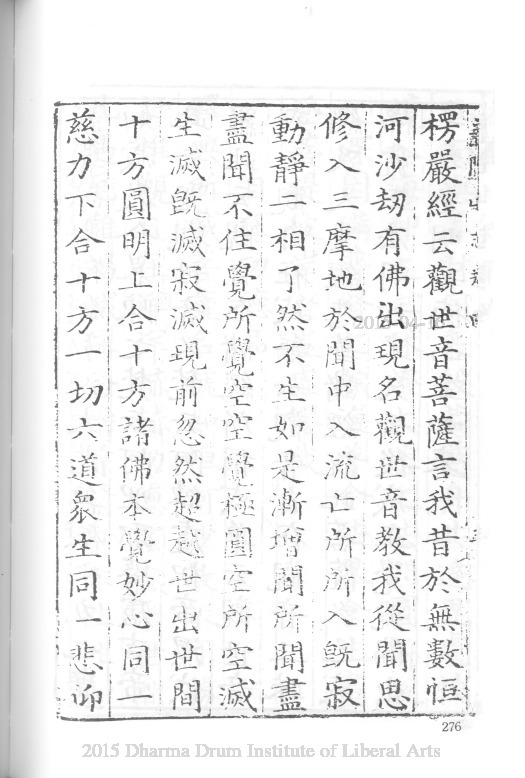 楞嚴經云觀世音菩薩言我昔於無數恒
河沙劫有佛出現名觀世音教我從聞思
修入三摩地於聞中入流亡所所入既寂
動靜二相了然不生如是漸增聞所聞盡
盡聞不住覺所覺空空覺極圓空所空滅
生滅既滅寂滅現前忽然超越世出世間
十方圓明上合十方諸佛本覺妙心同一
慈力下合十方一切六道衆生同一悲仰
276
2015 Dharma Drum Institute of Liberal Arts